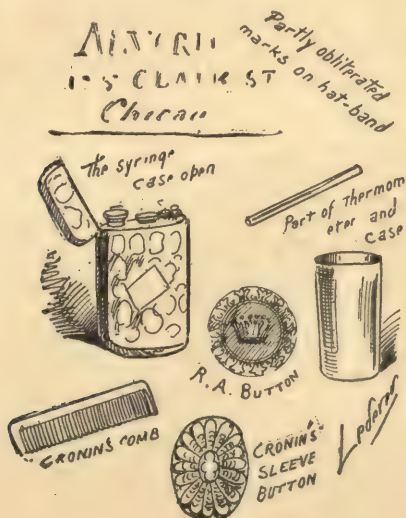 ST
Partly obliterated
marks on hat-band
The syringe
case open
Part of thermom
eter and
case
R.A. BUTTON
CRONIN'S COMB
CRONIN'S
SLEEVE
BUTTON
Lederer